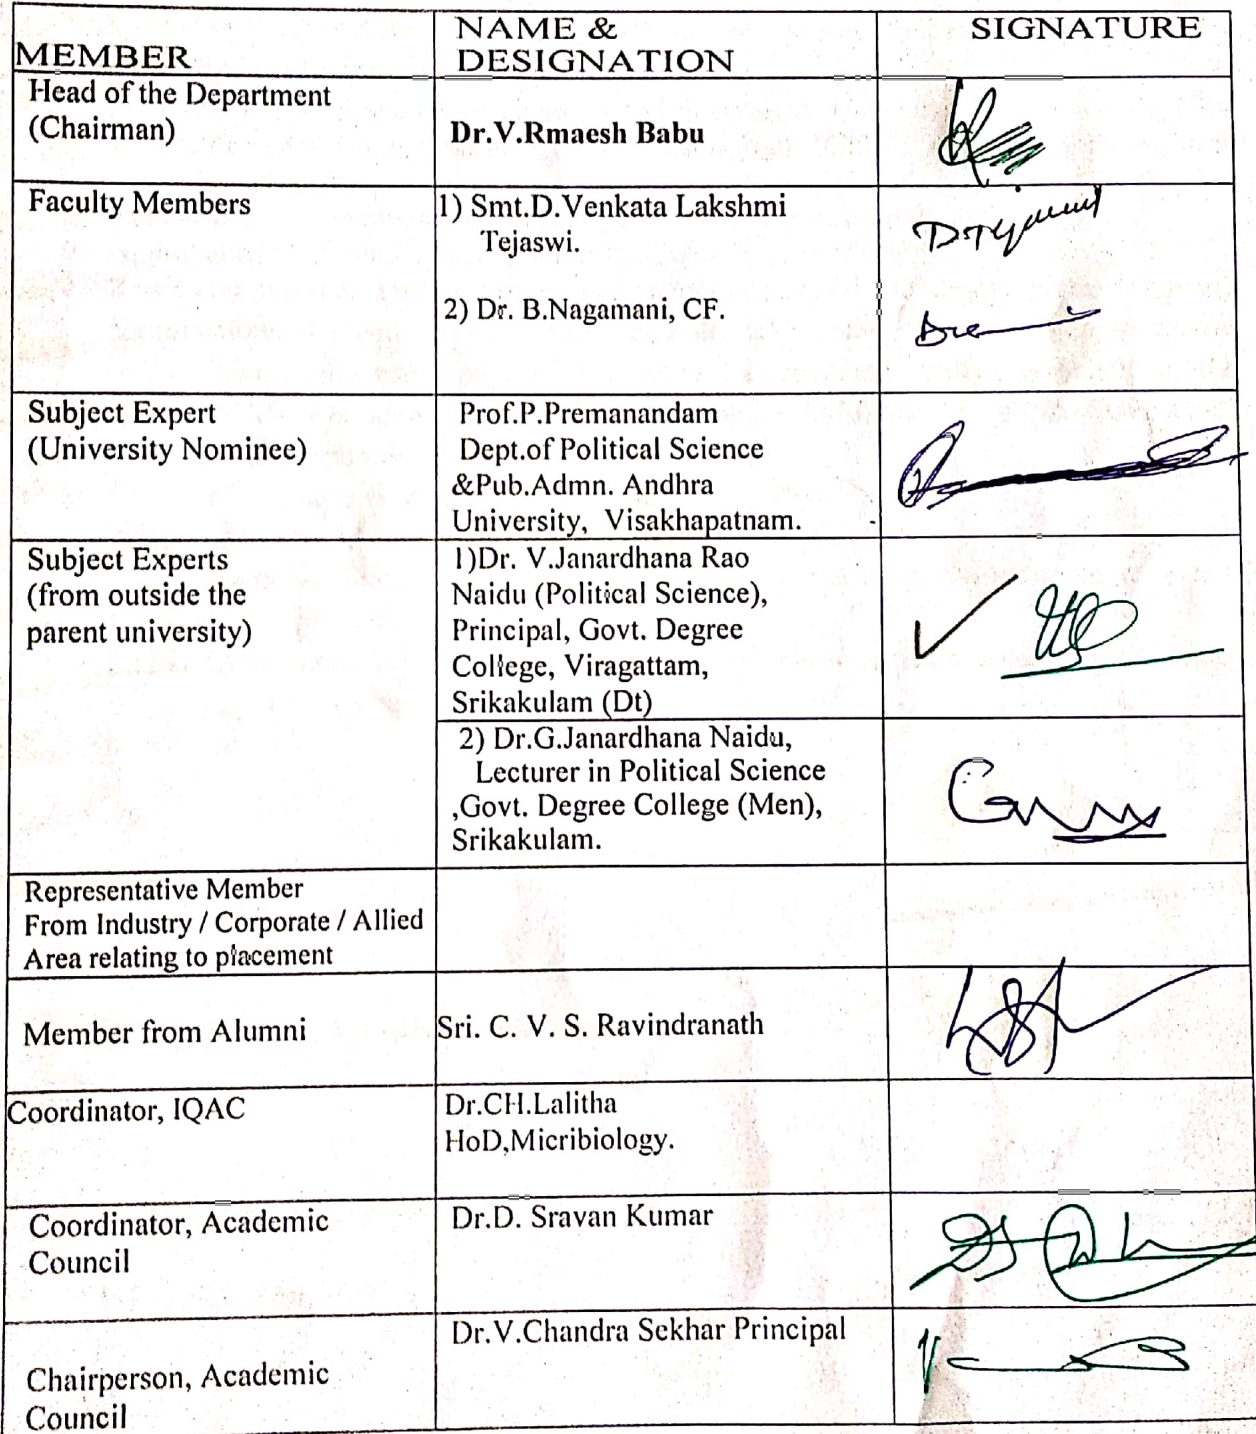 MEMBER
NAME &
DESIGNATION
SIGNATURE
Head of the Department
(Chairman)
Dr.V.Rmaesh Babu
Faculty Members
1) Smt.D.Venkata Lakshmi
Tejaswi.
2) Dr. B.Nagamani, CF.
Subject Expert
(University Nominee)
Prof.P.Premanandam
Dept.of Political Science
&Pub.Admn. Andhra
University, Visakhapatnam.
Subject Experts
(from outside the
parent university)
1)Dr. V.Janardhana Rao
Naidu (Political Science),
Principal, Govt. Degree
College, Viragattam,
Srikakulam (Dt)
2) Dr.G.Janardhana Naidu,
Lecturer in Political Science
,Govt. Degree College (Men),
Srikakulam.
Representative Member
From Industry / Corporate / Allied
Area relating to placement
Member from Alumni
Sri. C. V. S. Ravindranath
Coordinator, IQAC
Dr.CH.Lalitha
HoD,Micribiology.
Coordinator, Academic
Council
Dr.D. Sravan Kumar
Chairperson, Academic
Council
Dr.V.Chandra Sekhar Principal